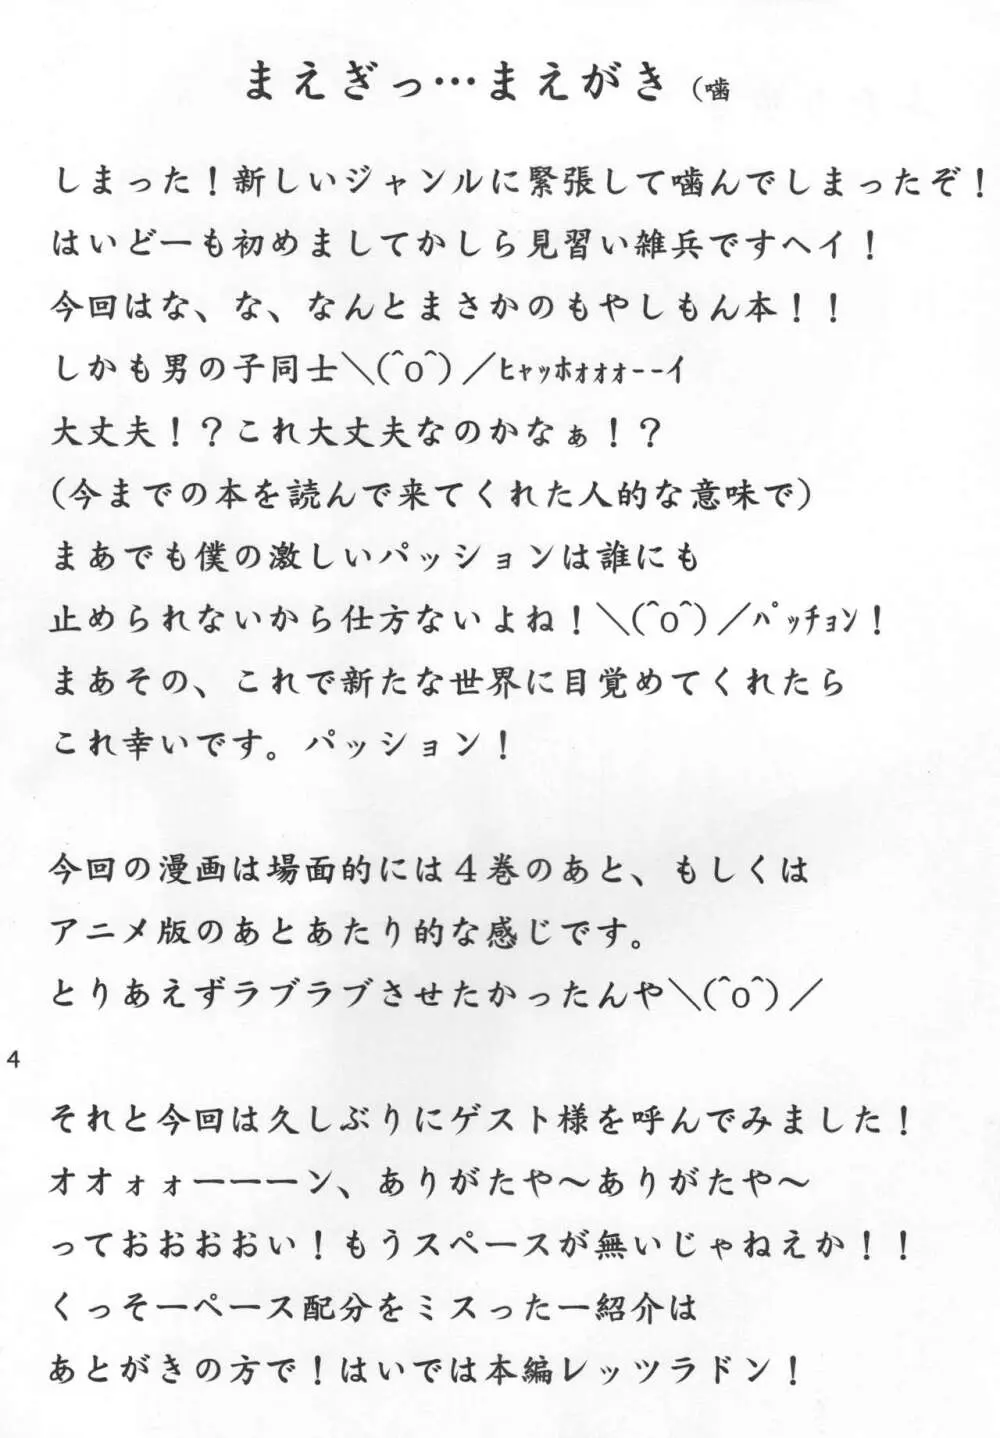 まえぎっ…まえがき（噛
しまった！新しいジャンルに緊張して噛んでしまったぞ！
はいどーも初めましてかしら見習い雑兵ですヘイ！
今回はな、な、なんとまさかのもやしもん本！！
しかも男の子同士＼(^o^)／ﾋｬｯﾎｫｫｫｰｰイ
大丈夫！？これ大丈夫なのかなぁ！？
(今までの本を読んで来てくれた人的な意味で)
まあでも僕の激しいパッションは誰にも
止められないから仕方ないよね！＼(^o^)／ﾊﾟｯﾁｮﾝ！
まあその、これで新たな世界に目覚めてくれたら
これ幸いです。パッション！
今回の漫画は場面的には４巻のあと、もしくは
アニメ版のあとあたり的な感じです。
とりあえずラブラブさせたかったんや＼(^o^)／
4
それと今回は久しぶりにゲスト様を呼んでみました！
オオォォーーーン、ありがたや～ありがたや～
っておおおおい！もうスペースが無いじゃねえか！！
くっそーペース配分をミスったー紹介は
あとがきの方で！はいでは本編レッツラドン！